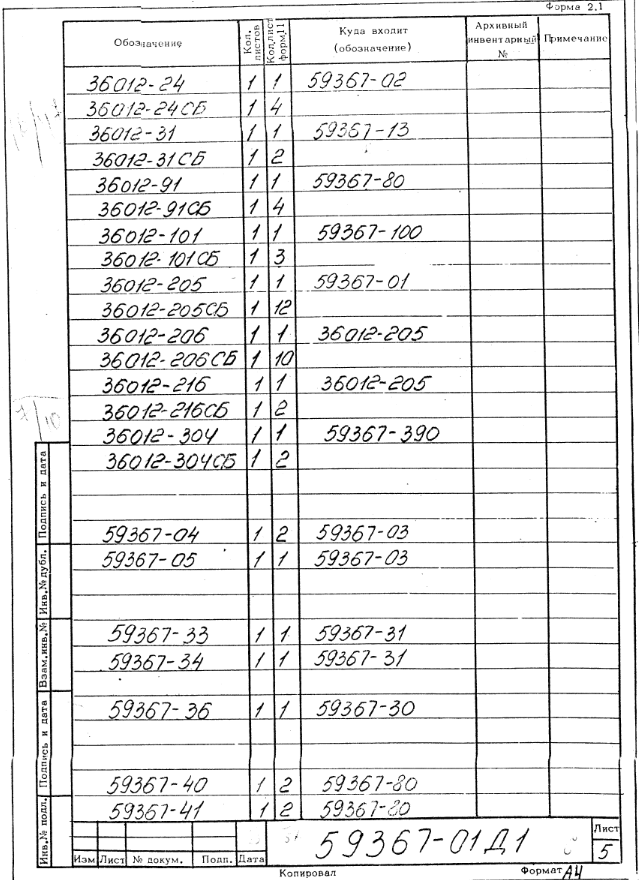 Форма 2.1
Обозначение | Кол. листов | Кол.лист форм.11 | Куда входит (обозначение) | Архивный инвентарный № | Примечание
36012-24 | 1 | 1 | 59367-02
36012-24СБ | 1 | 4
36012-31 | 1 | 1 | 59367-13
36012-31СБ | 1 | 2
36012-91 | 1 | 1 | 59367-80
36012-91СБ | 1 | 4
36012-101 | 1 | 1 | 59367-100
36012-101СБ | 1 | 3
36012-205 | 1 | 1 | 59367-01
36012-205СБ | 1 | 12
36012-206 | 1 | 1 | 36012-205
36012-206СБ | 1 | 10
36012-216 | 1 | 1 | 36012-205
36012-216СБ | 1 | 2
36012-304 | 1 | 1 | 59367-390
36012-304СБ | 1 | 2
59367-04 | 1 | 2 | 59367-03
59367-05 | 1 | 1 | 59367-03
59367-33 | 1 | 1 | 59367-31
59367-34 | 1 | 1 | 59367-31
59367-36 | 1 | 1 | 59367-30
59367-40 | 1 | 2 | 59367-80
59367-41 | 1 | 2 | 59367-80
7/10
Подпись и дата
Инв.№ дубл.
Взам.инв.№
Подпись и дата
Инв.№ подл.
59367-01Д1
Лист
5
Изм | Лист | № докум. | Подп. | Дата
Копировал
Формат А4